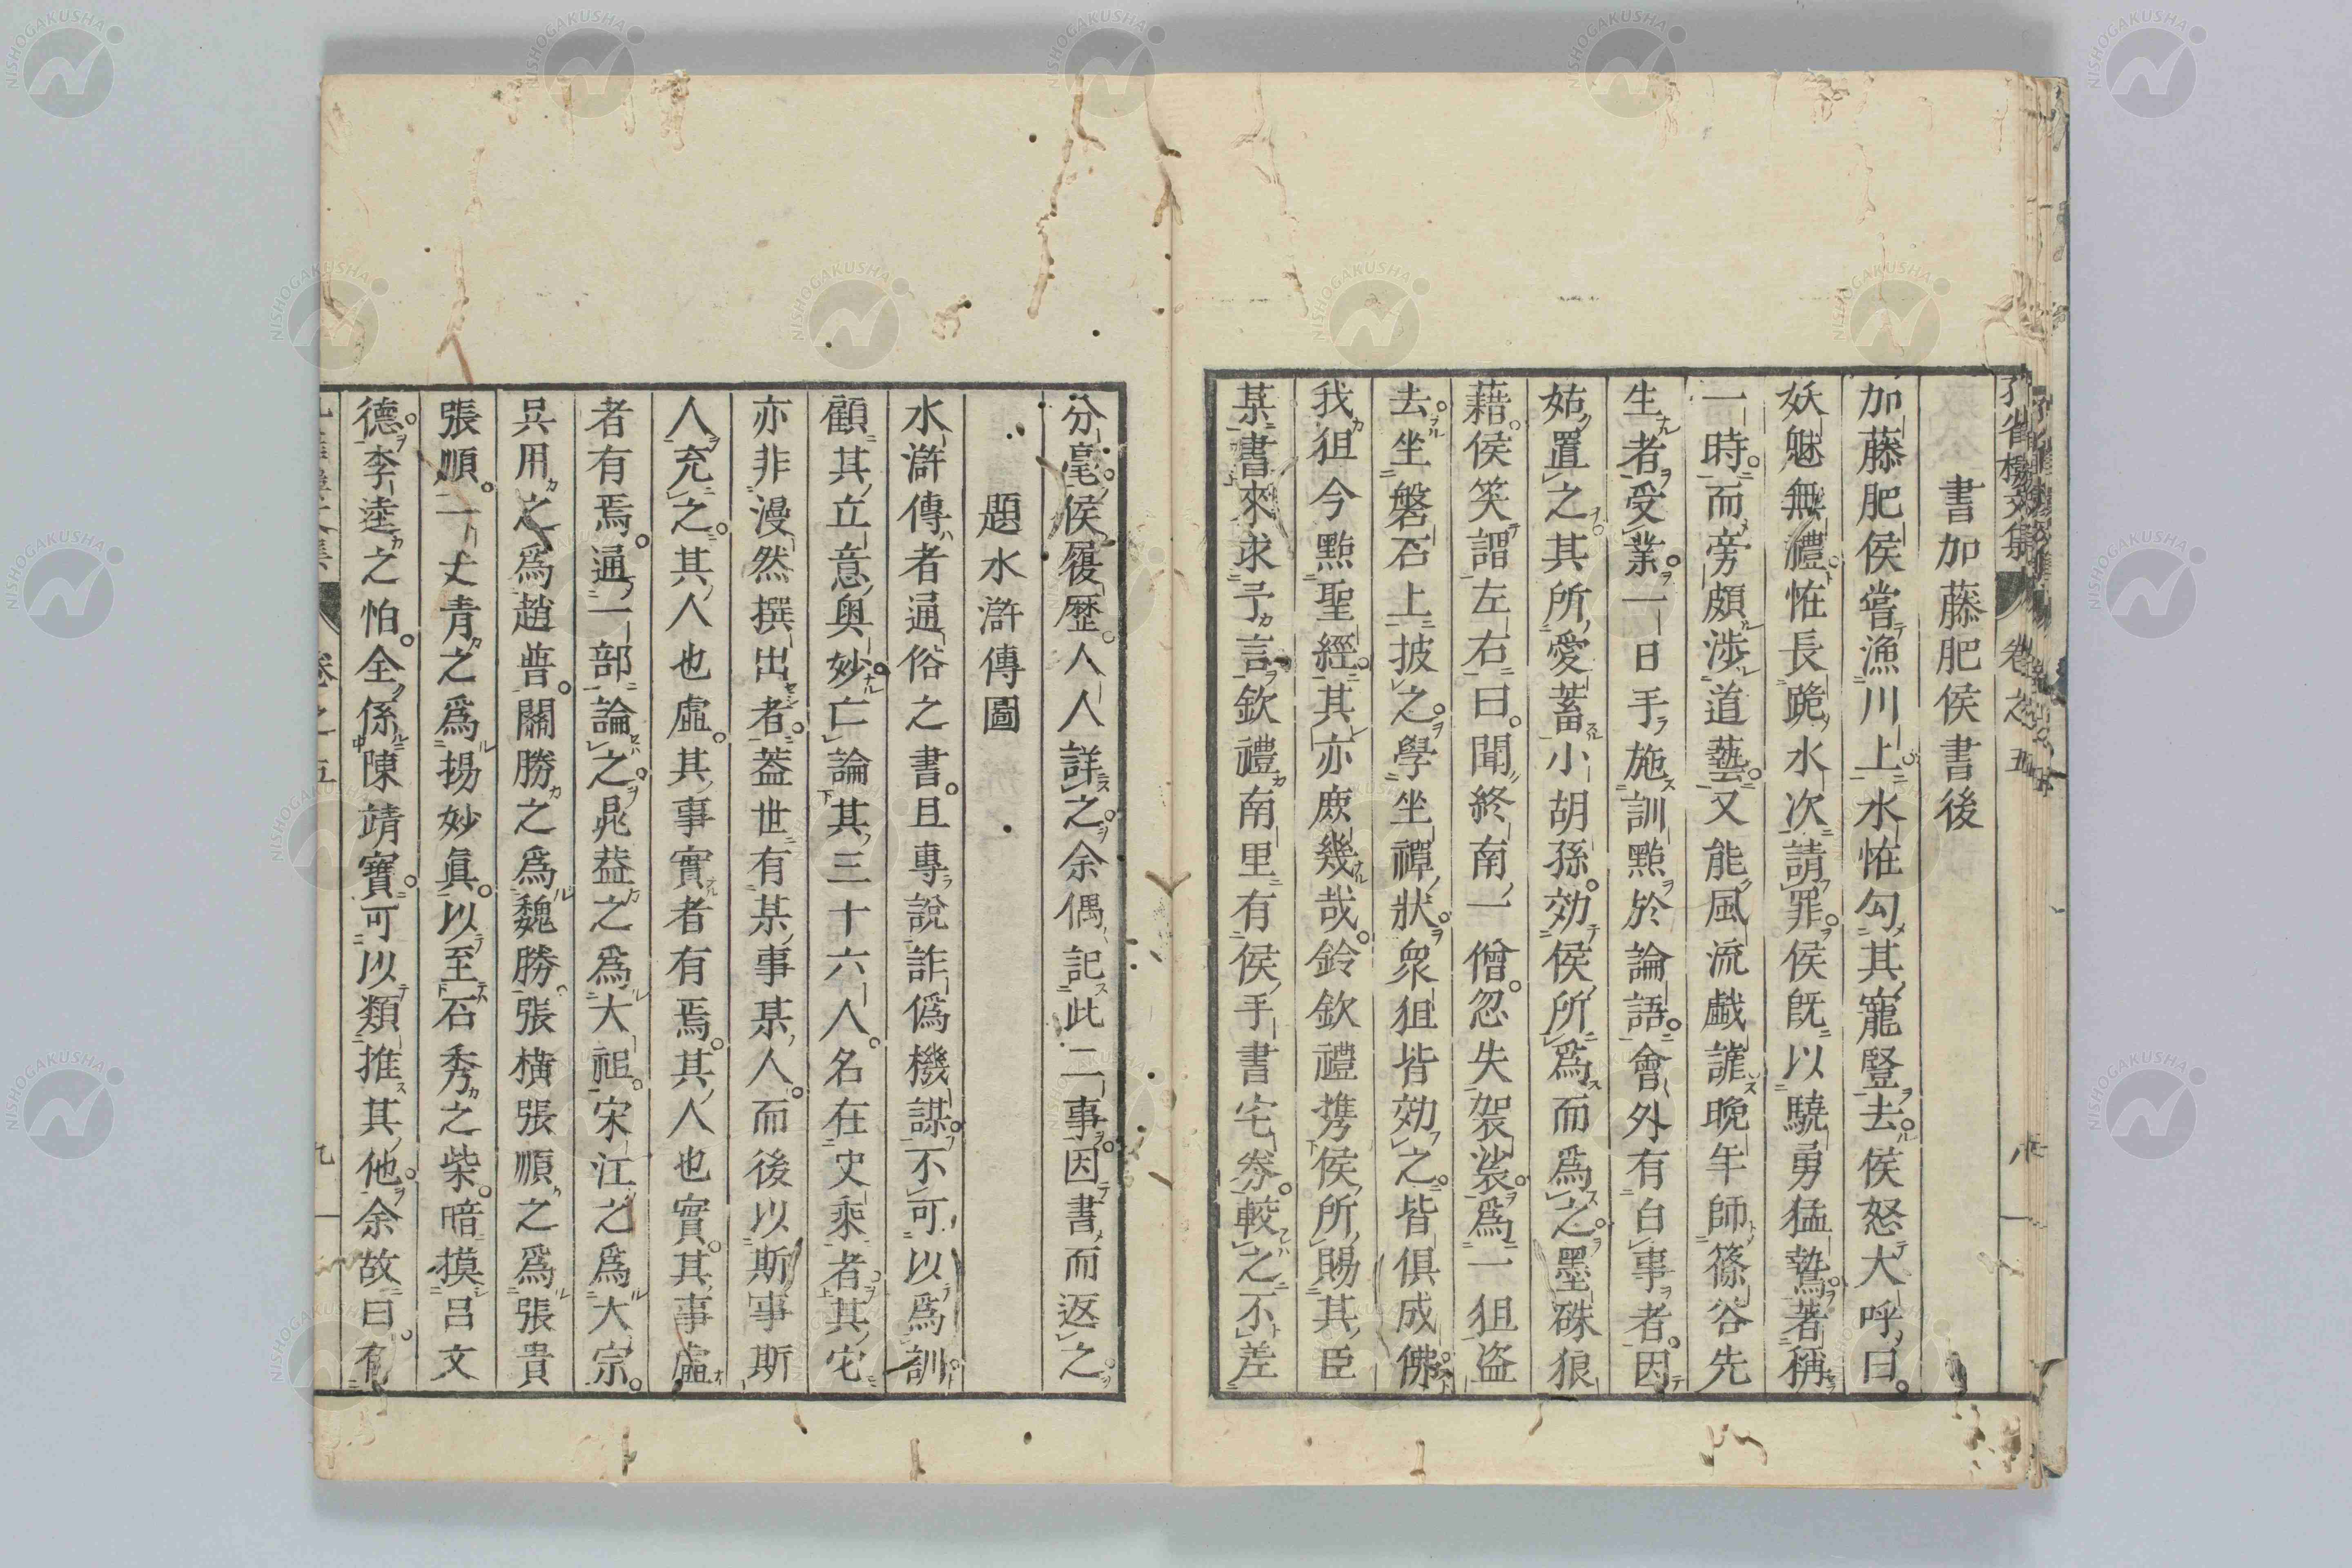 書加藤肥侯書後
加藤肥侯嘗漁川上水恠勾其寵豎去侯怒大呼曰
妖魅無禮恠長跪水次請罪侯旣以驍勇猛鷙著稱
一時而旁頗涉道藝又能風流戯謔晩年師篠谷先
生者受業一日手施訓㸃於論語會外有白事者因
姑置之其所愛蓄小胡孫効侯所爲而爲之墨硃狼
藉侯笑謂左右曰聞終南一僧忽失袈裟爲一狙盗
去坐磐石上披之學坐禪狀衆狙皆効之皆俱成佛
我狙今㸃聖經其亦庶幾哉鈴欽禮携侯所賜其臣
某書來求予言欽禮南里有侯手書宅劵較之不差
分毫侯履歷人人詳之余偶記此二事因書而返之
題水滸傳圖
水滸傳者通俗之書且專說詐僞機謀不可以爲訓
顧其立意奥妙亡論其三十六人名在史乘者其它
亦非漫然撰出者葢世有某事某人而後以斯事斯
人充之其人也虛其事實者有焉其人也實其事虛
者有焉通一部論之晁益之爲大祖宋江之爲大宗
呉用之爲趙普關勝之爲魏勝張橫張順之爲張貴
張順一丈青之爲揚妙眞以至石秀之柴暗摸呂文
德李逵之怕全係陳靖寶可以類推其他余故曰有
卷之五
九